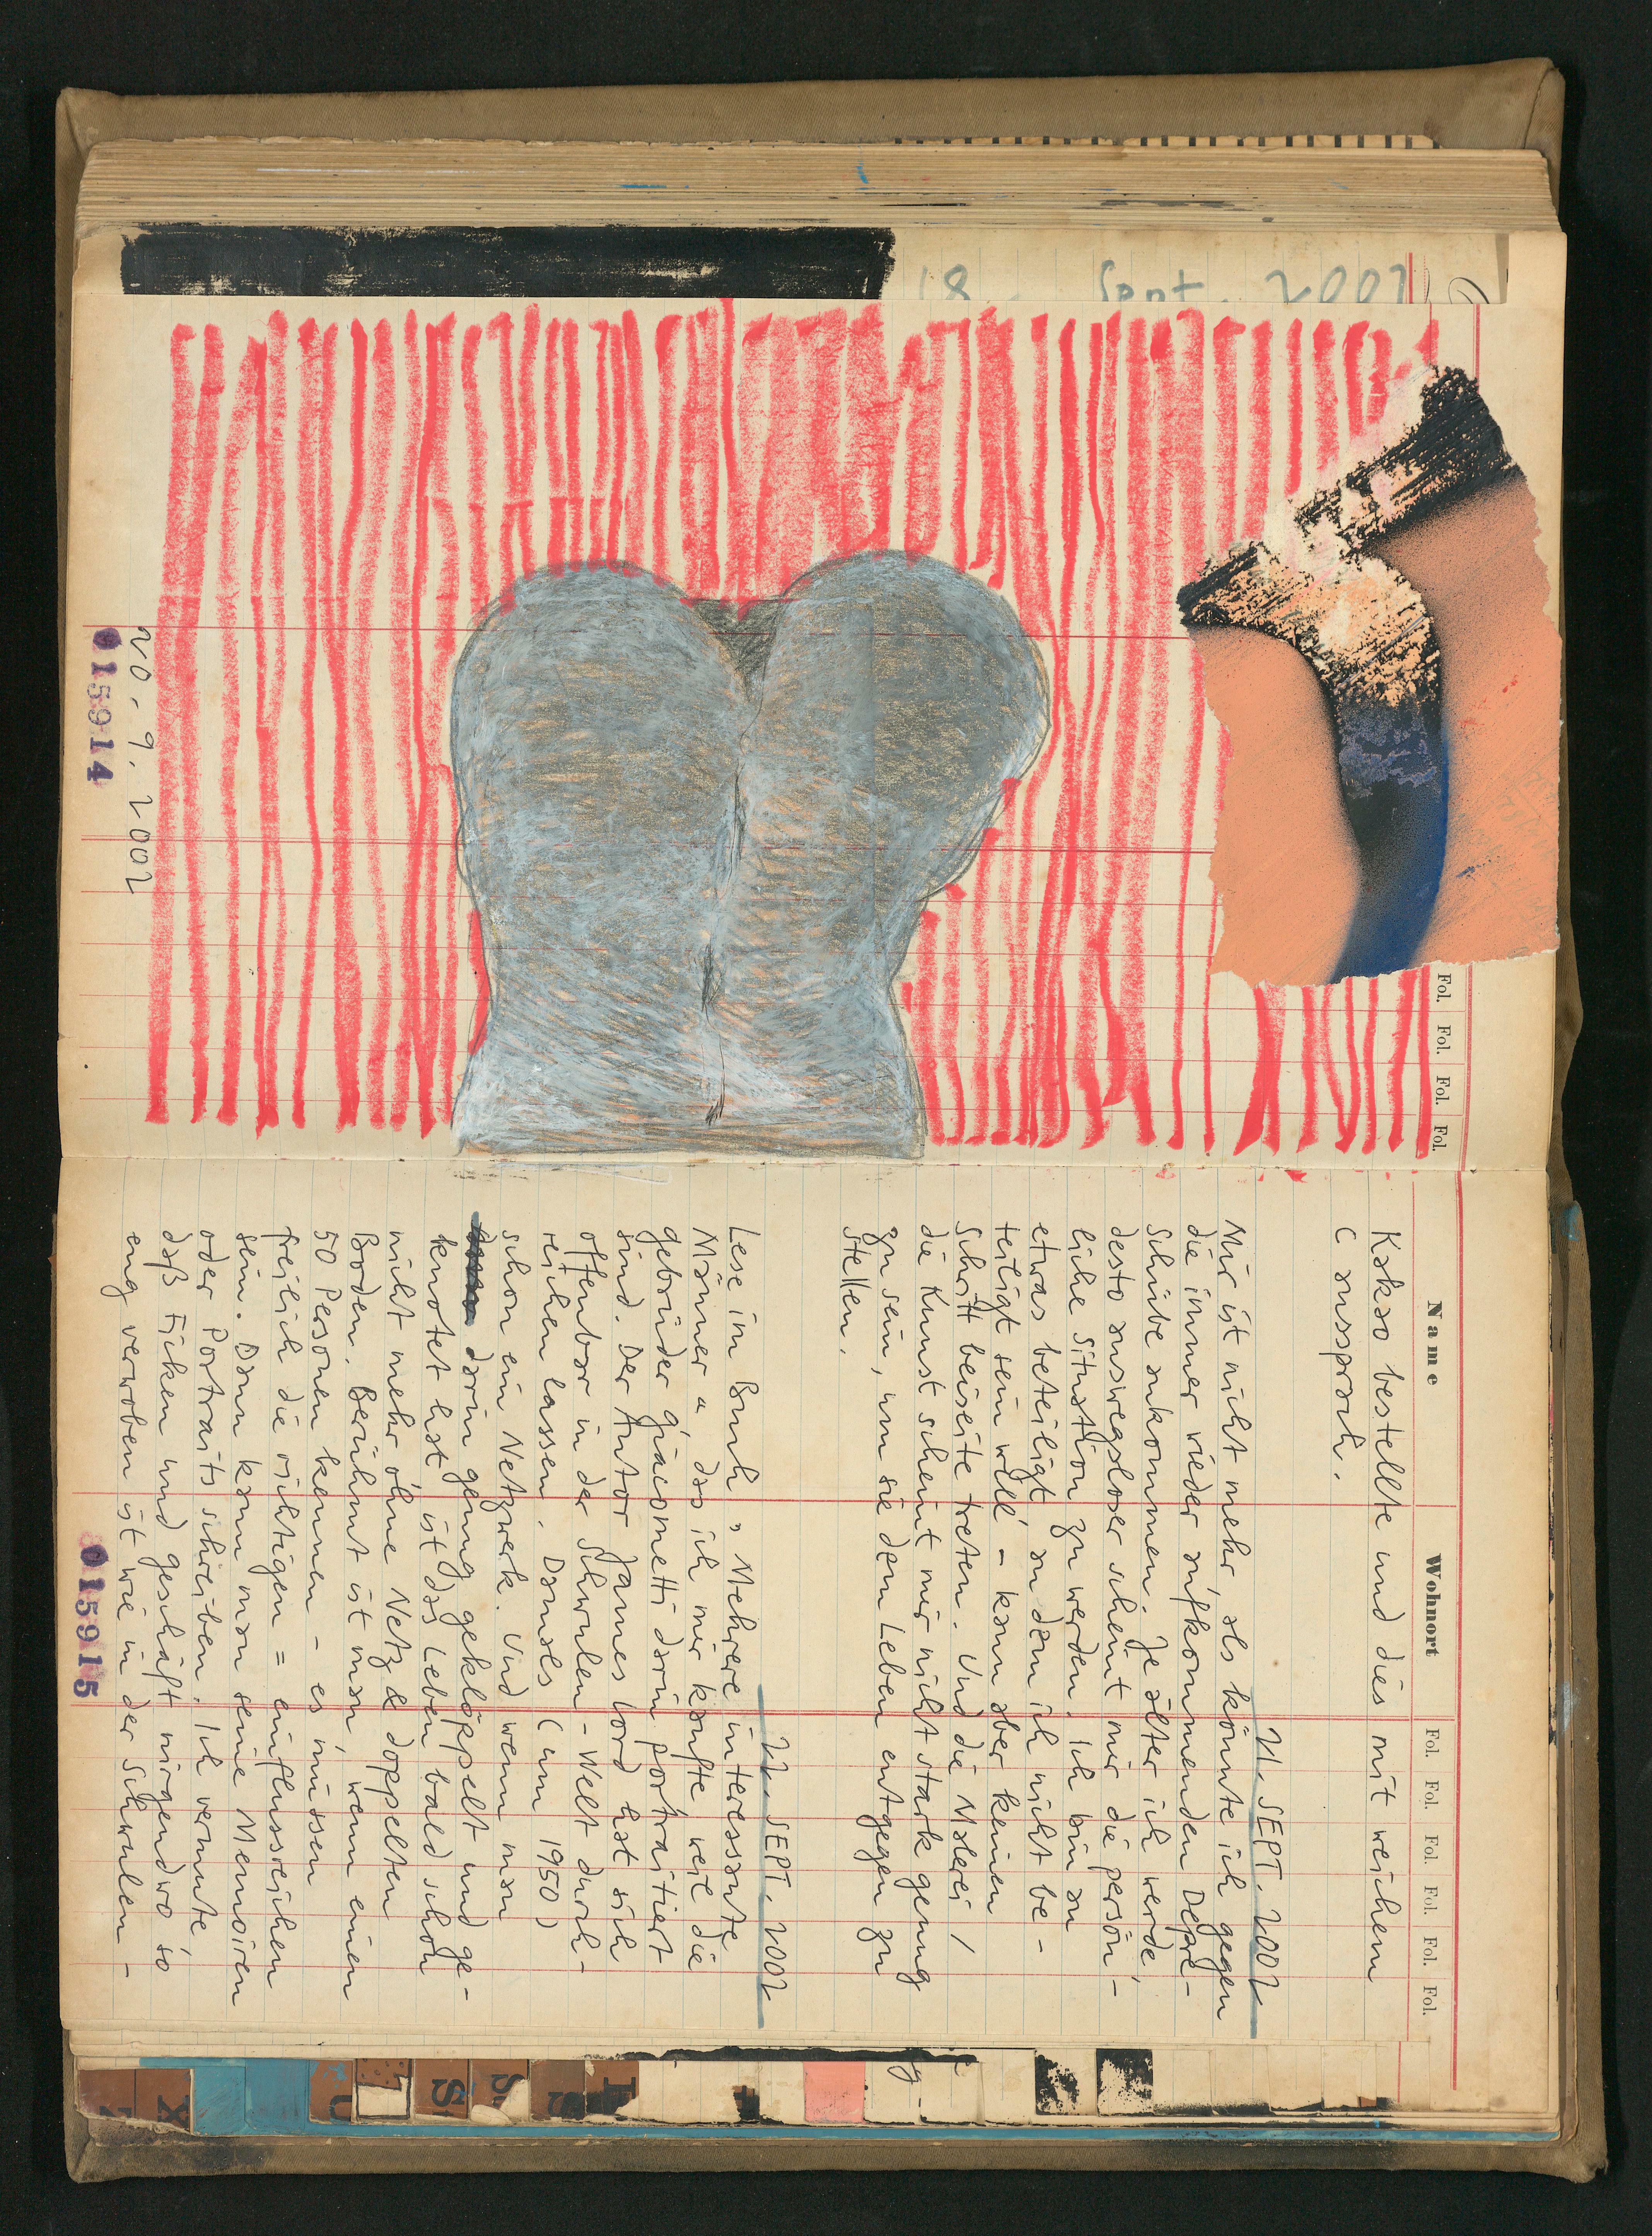 18. Sept. 2002
Fol. Fol. Fol. Fol.
20. 9. 2002
015914
Name Wohnort Fol. Fol. Fol. Fol. Fol. Fol.
Kakao bestellte und dies mit weichem
C aussprach.
21. SEPT. 2002
Mir ist nicht mehr, als könnte ich gegen
die immer wieder aufkommenden Depre-
Schübe ankommen. Je älter ich werde,
desto auswegsloser scheint mir die persön-
liche Situation zu werden. Ich bin an
etwas beteiligt, an dem ich nicht be-
teiligt sein will – kann aber keinen
Schritt beiseite treten. Und die Malerei /
die Kunst scheint mir nicht stark genug
zu sein, um sie dem Leben entgegen zu
stellen.
22. SEPT. 2002
Lese im Buch „Mehrere interessante
Männer", das ich mir kaufte weil die
gebrüder giacometti darin portraitiert
sind. Der Autor James Lord hat sich
offenbar in der Schwulen-Welt durch-
reichen lassen. Damals (um 1950)
schon ein Netzwerk. Und wenn man
darin genug geklöppelt und ge-
knotet hat, ist das Leben bald schon
nicht mehr ohne Netz & doppelten
Boden. Berühmt ist man, wenn einen
50 Personen kennen – es müssen
freilich die richtigen = einflussreichen
sein. Dann kann man seine Memoiren
oder Portraits schreiben. Ich vermute,
daß Ficken und geschäft nirgendwo so
eng verwoben ist wie in der Schwulen-
015915